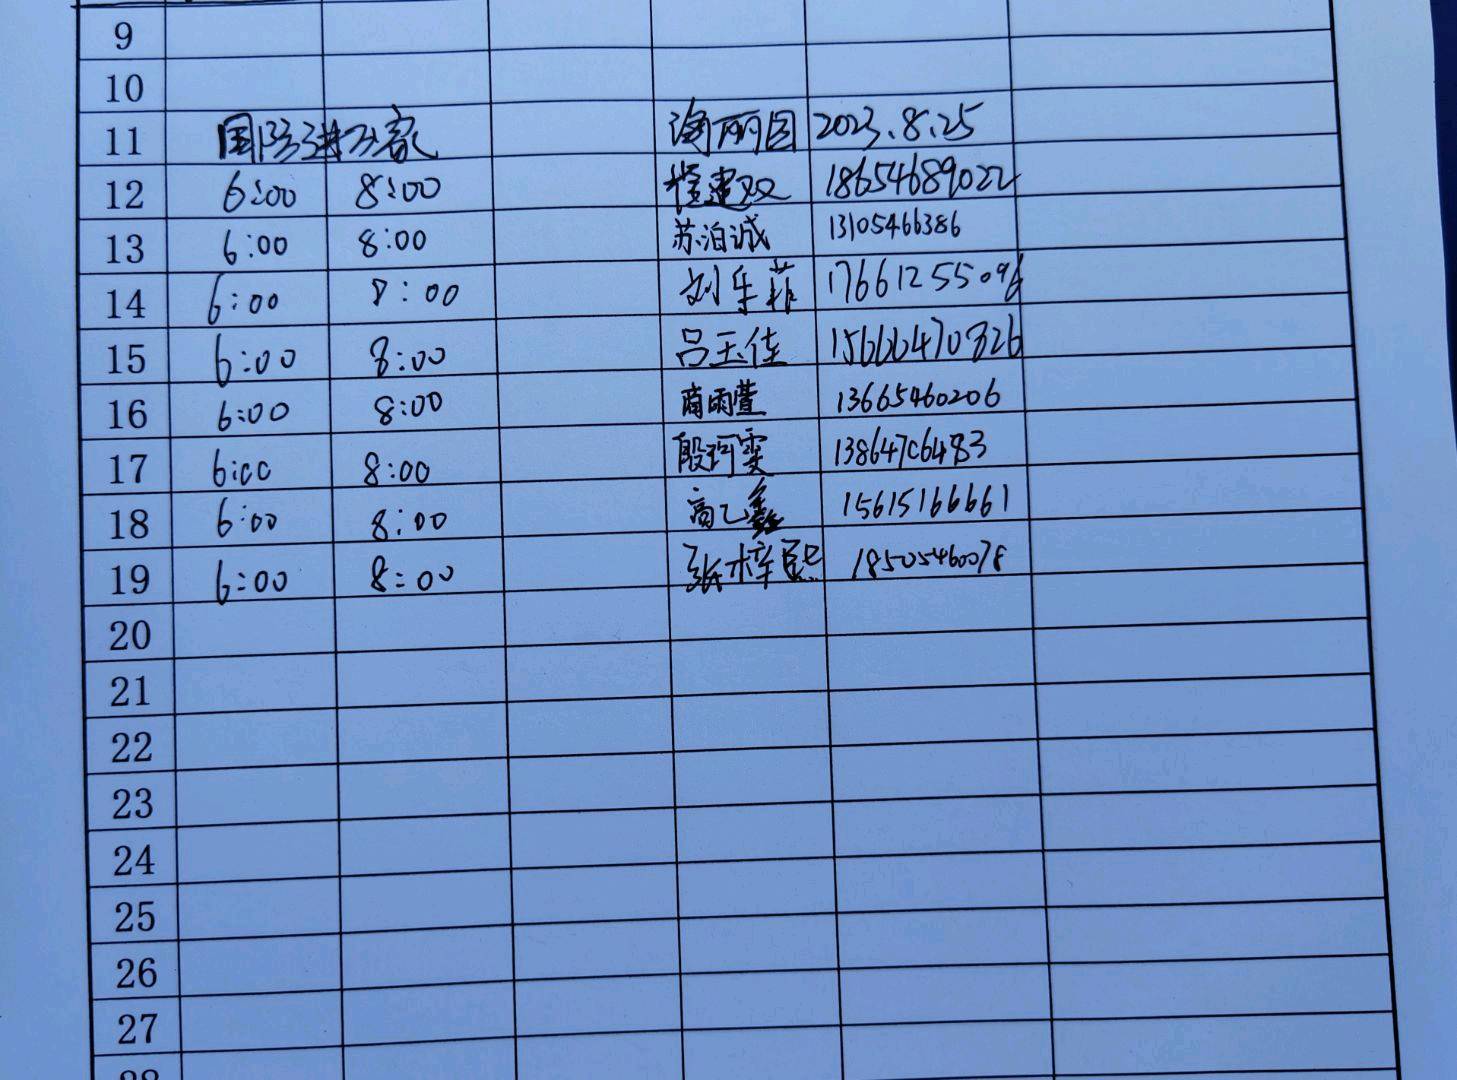 9
10
11 国防进万家 海丽园 2023.8.25
12 6:00 8:00 程建双 18654689022
13 6:00 8:00 苏泊诚 13105466386
14 6:00 8:00 刘乐菲 17661255096
15 6:00 8:00 吕玉佳 15666470826
16 6:00 8:00 商雨萱 13665460206
17 6:00 8:00 殷珂雯 13864706483
18 6:00 8:00 高乙鑫 15615166661
19 6:00 8:00 张梓熙 18505460078
20
21
22
23
24
25
26
27
28